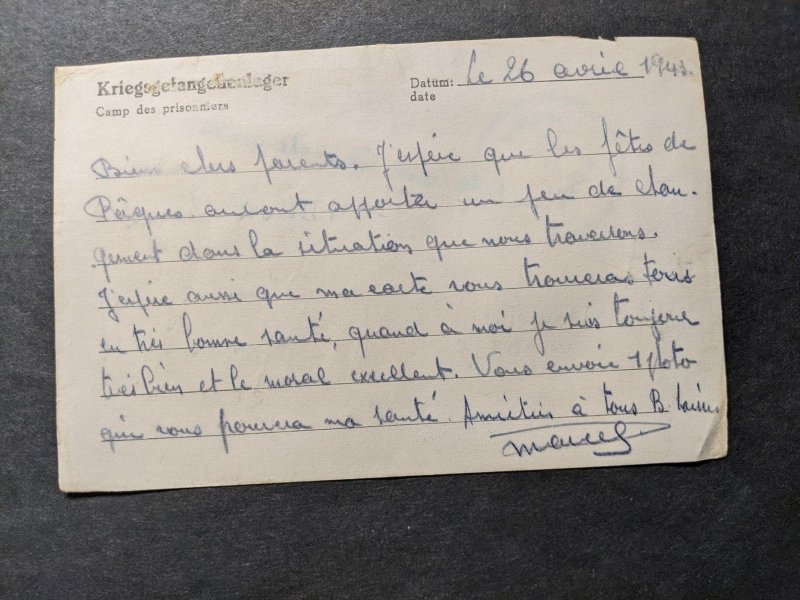 Kriegsgefangenenlager
Camp des prisonniers
Datum: le 26 avril 1943.
date
Bien chers parents. J'espère que les fêtes de
Pâques auront apporter un peu de chan-
gement dans la situation que nous traversons.
J'espère aussi que ma carte vous trouveras tous
en très bonne santé, quand à moi je suis toujours
très bien et le moral excellent. Vous envoie 1 photo
qui vous prouvera ma santé. Amitiés à tous B. baisers
Marcel